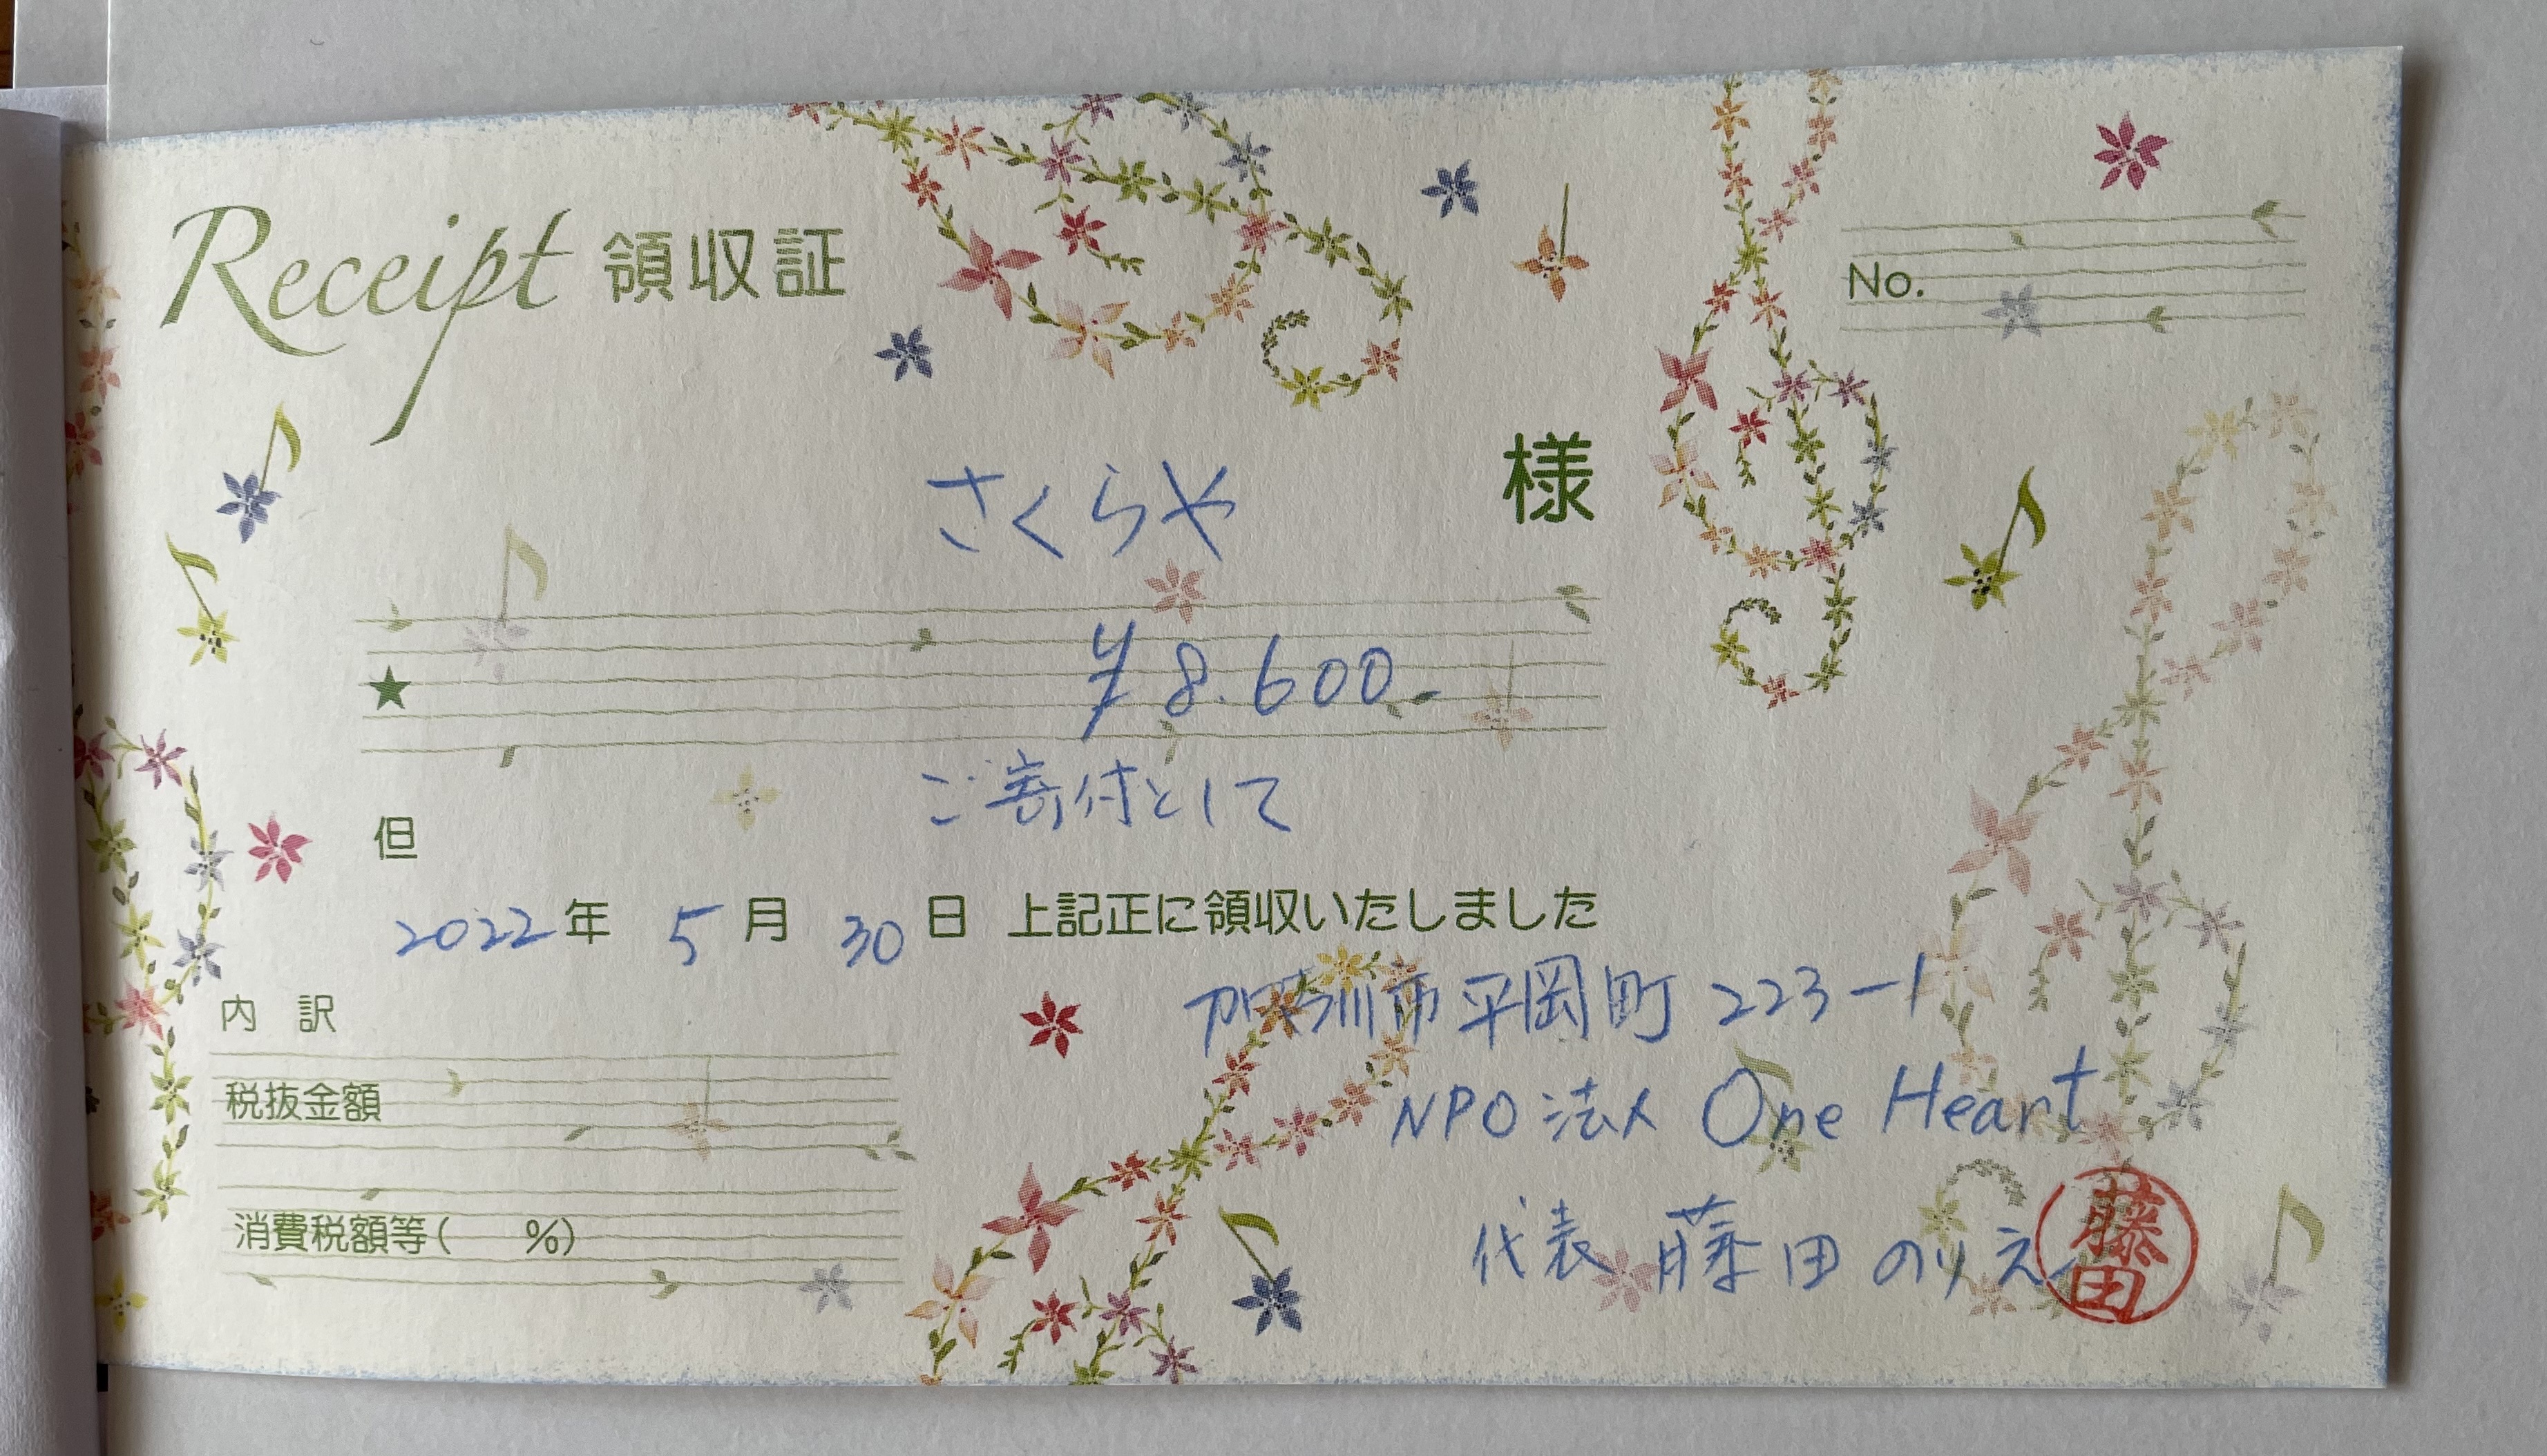 Receipt 領収証
No.
さくらや 様
★ ¥8.600.-
但 ご寄付として
2022年 5月 30日 上記正に領収いたしました
内 訳
税抜金額
消費税額等( %)
加古川市平岡町 223-1
NPO法人 One Heart
代表 藤田 のりえ
藤田